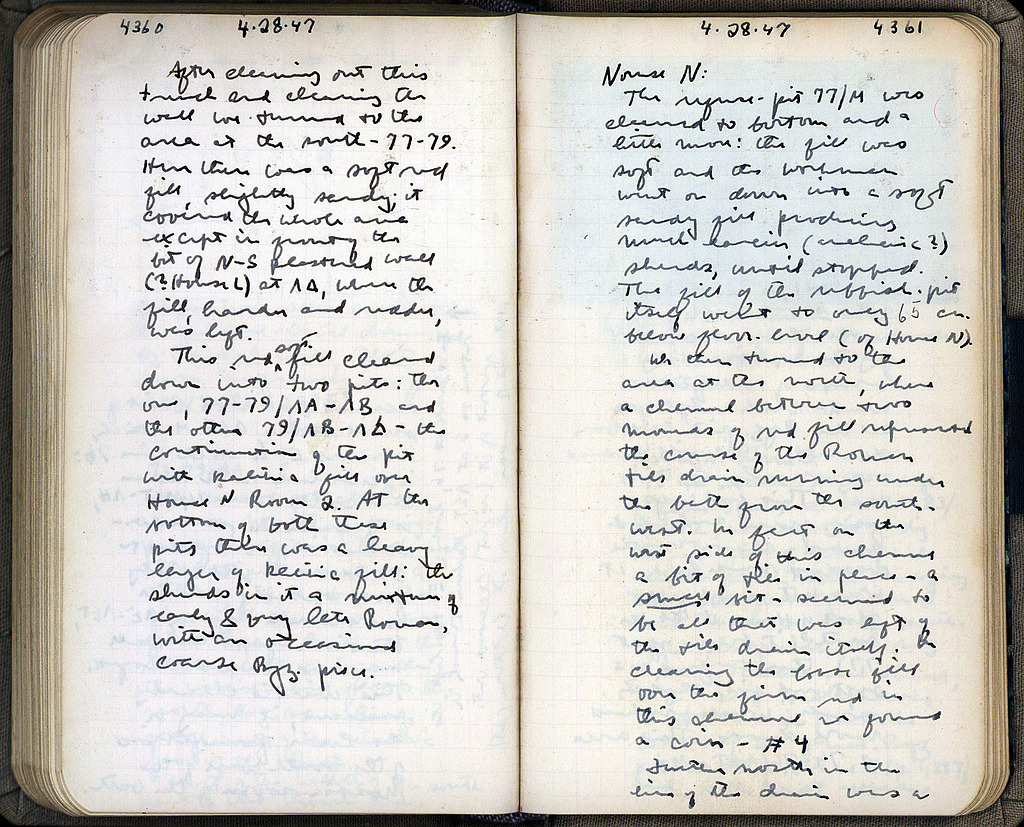 4360 4.28.47
After cleaning out this
trench and cleaning the
well we turned to the
area at the south - 77-79.
Here there was a soft red
fill, slightly sandy; it
covered the whole area
except in front of the
bit of N-S plastered wall
(? House L) at ΛΔ, where the
fill, harder and redder,
was left.
This red soft fill cleared
down into two pits: the
one, 77-79/ΛΑ-ΛΒ, and
the other 79/ΛΒ-ΛΔ - the
continuation of the pit
with fill over
House N Room 2. At the
bottom of both these
pits there was a heavy
layer of fill: the
sherds in it a mixture of
early & very late Roman,
with an occasional
coarse Byz. piece.
4.28.47 4361
House N:
The refuse-pit 77/Μ was
cleaned to bottom and a
little more: the fill was
soft and the workmen
went on down into a soft
sandy fill producing
much earlier (archaic?)
sherds, until stopped.
The fill of the rubbish-pit
itself went to only 65 cm.
below floor-level (of House N).
We then turned to the
area at the north, where
a channel between two
mounds of red fill represented
the course of the Roman
tiles drain running under
the bath from the south-
west. In fact on the
west side of this channel
a bit of tiles in place - a
small bit - seemed to
be all that was left of
the tiles drain itself. In
cleaning the loose fill
over the firm red in
this channel we found
a coin - #4
Further north in the
line of the drain was a